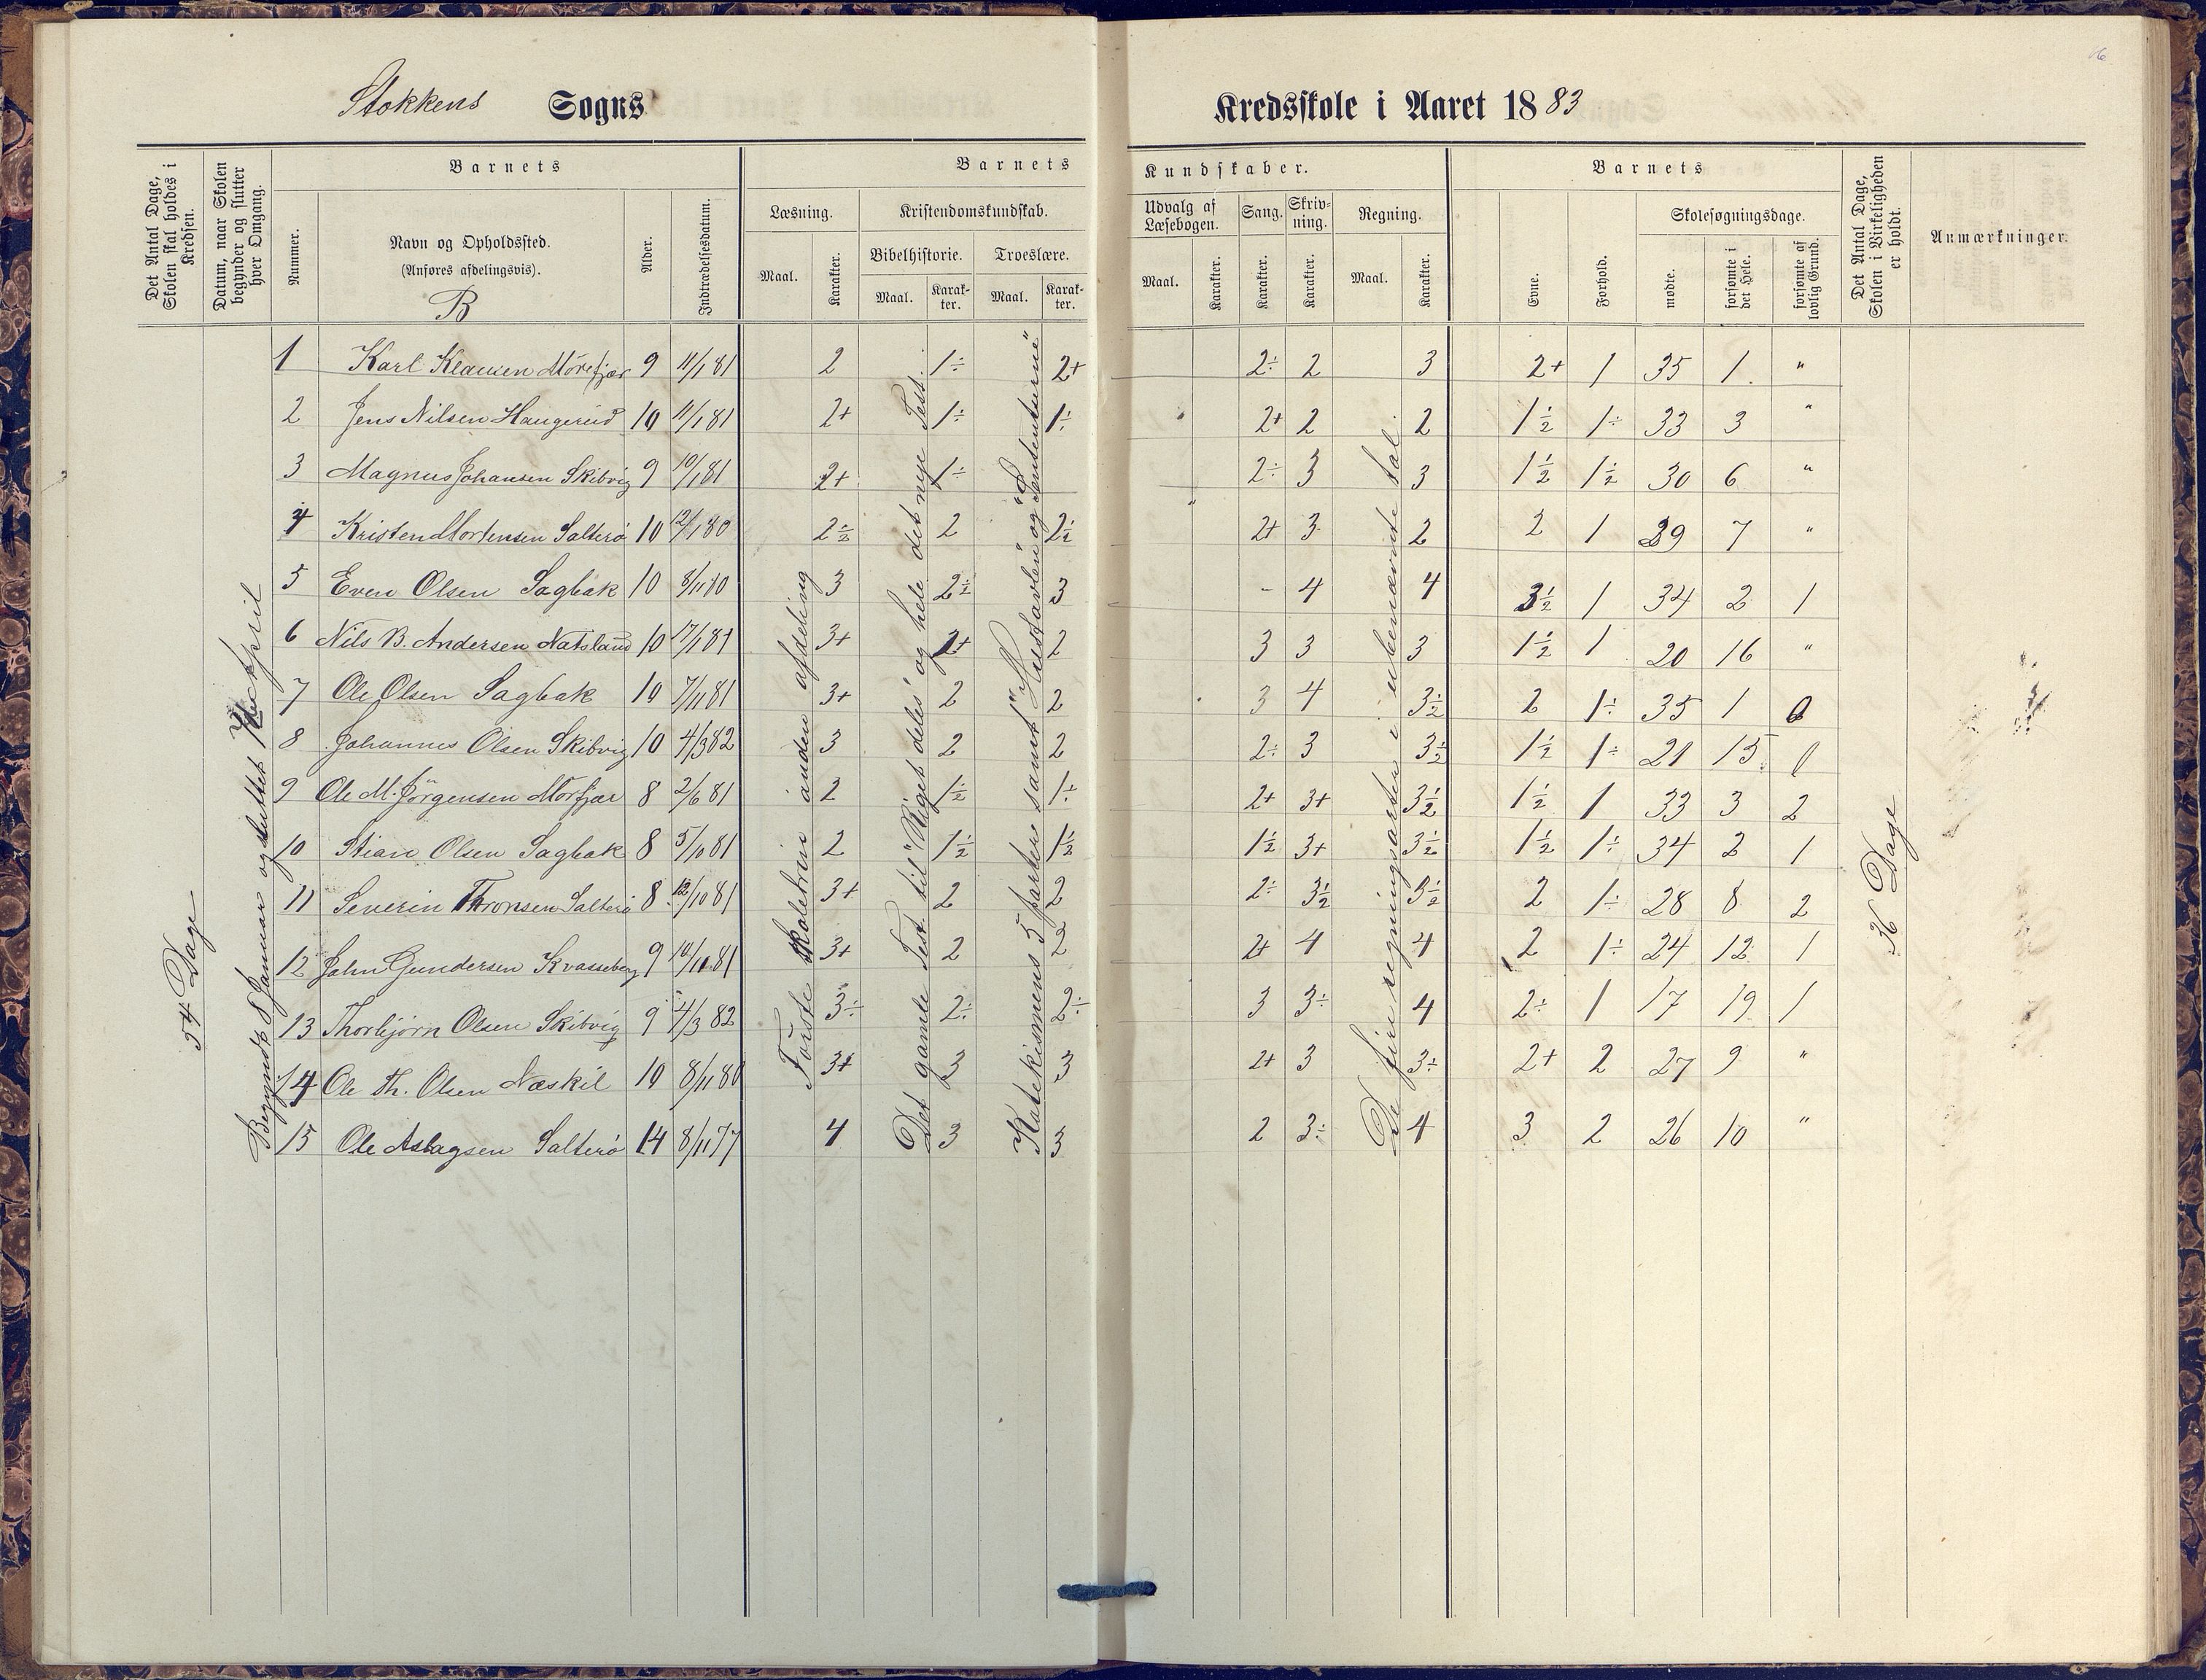 Stokkens Sogns Kredsskole i Aaret 1883
Det Antal Dage, Skolen skal holdes i Kredsen.
Datum, naar Skolen begynder og slutter hver Omgang.
Barnets
Nummer.
Navn og Opholdssted.
(Anføres afdelingsvis).
B
Alder.
Indtrædelsesdatum.
Barnets Kundskaber.
Læsning.
Maal.
Karakter.
Kristendomskundskab.
Bibelhistorie.
Maal.
Karakter.
Troeslære.
Maal.
Karakter.
Udvalg af Læsebogen.
Maal.
Karakter.
Sang.
Karakter.
Skrivning.
Karakter.
Regning.
Maal.
Karakter.
Barnets
Evne.
Forhold.
Skolesøgningsdage.
mødte.
forsømte i det Hele.
forsømte af lovlig Grund.
Det Antal Dage, Skolen i Virkeligheden er holdt.
Anmærkninger.
54 Dage
Begyndt 8 Januar og sluttet April
Første skoletrin anden afdeling
Det gamle Test. til "Riget deles" og hele det nye Test.
Katekismens 5 parter samt "Hustavlen" og
De fire regningsarter i ubenævnte tal.
36 Dage
1 Karl Klausen Mörefjær 9 11/1 81 2 1÷ 2+ 2÷ 2 3 2+ 1 35 1 "
2 Jens Nilsen Haugerud 10 11/1 81 2+ 1÷ 1÷ 2+ 2 2 1½ 1÷ 33 3 "
3 Magnus Johansen Skibvig 9 10/1 81 2+ 1÷ 2÷ 3 3 1½ 1½ 30 6 "
4 Kristen Mortensen Salterö 10 12/1 80 2½ 2 2½ 2+ 3 2 2 1 29 7 "
5 Even Olsen Sagbak 10 8/11 80 3 2½ 3 - 4 4 3½ 1 34 2 1
6 Nils B. Andersen Natsland 10 17/1 81 3+ 2+ 2 3 3 3 1½ 1 20 16 "
7 Ole Olsen Sagbak 10 7/11 81 3+ 2 2 3 4 3½ 2 1÷ 35 1 0
8 Johannes Olsen Skibvig 10 4/3 82 3 2 2 2÷ 3 3½ 1½ 1÷ 21 15 0
9 Ole M. Jörgensen Morfjær 8 2/6 81 2 1½ 1÷ 2+ 3+ 3½ 1½ 1 33 3 2
10 Stian Olsen Sagbak 8 5/10 81 2 1½ 1½ 1½ 3+ 3½ 1½ 1÷ 34 2 1
11 Severin Thronsen Salterö 8 12/10 81 3+ 2 2 2÷ 3½ 3½ 2 1÷ 28 8 2
12 John Gundersen Kvasseberg 9 10/11 81 3+ 2 2 2+ 4 4 2 1÷ 24 12 1
13 Thorbjörn Olsen Skibvig 9 4/3 82 3÷ 2÷ 2÷ 3 3÷ 4 2÷ 1 17 19 1
14 Ole Th. Olsen Næskil 10 8/11 80 3+ 3 3 2+ 3 3÷ 2+ 2 27 9 "
15 Ole Aslagsen Salterö 14 8/11 77 4 3 3 2 3÷ 4 3 2 26 10 "